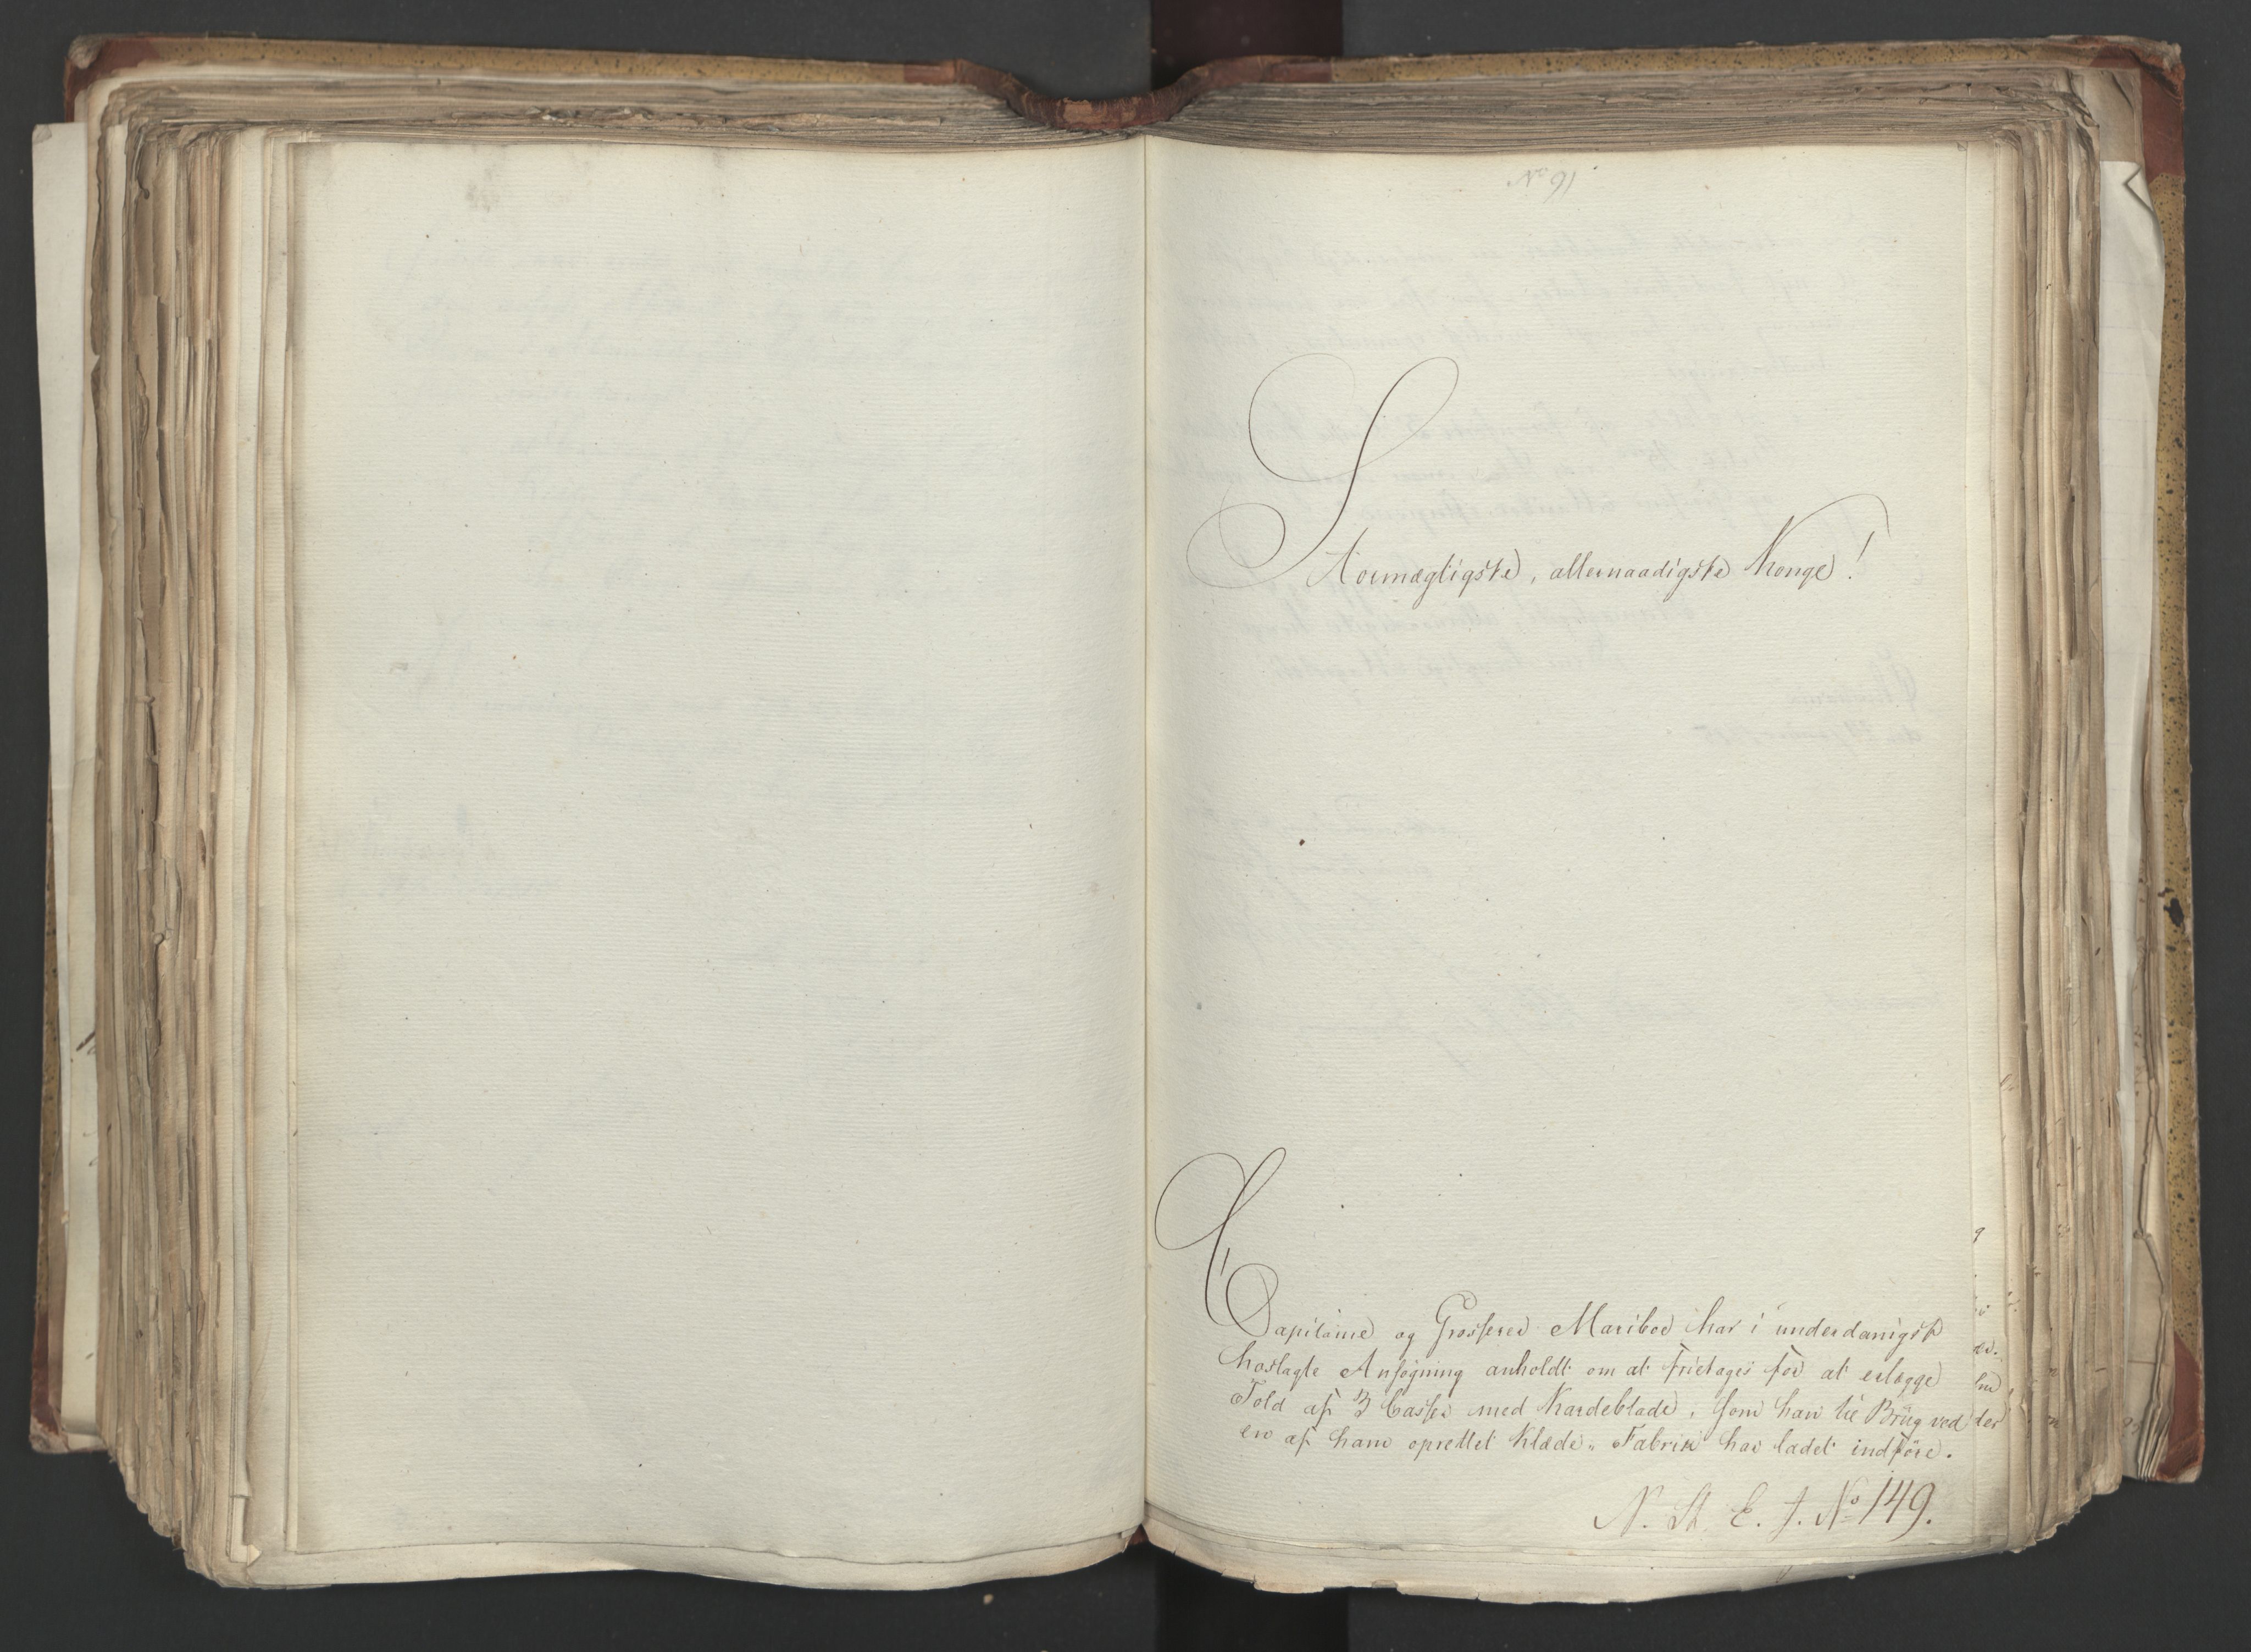 No 91
Stormægtigste, allernaadigste Konge!
Capitaine og Grosserer Mariboe har i underdanigst
hoslagte Ansøgning anholdt om at fritages for at erlægge
Told af 3 Casser med Kardeblade, som han til Brug ved
en af ham oprettet Klæde-Fabrik har ladet indføre.
N. St. E. J. No 149.